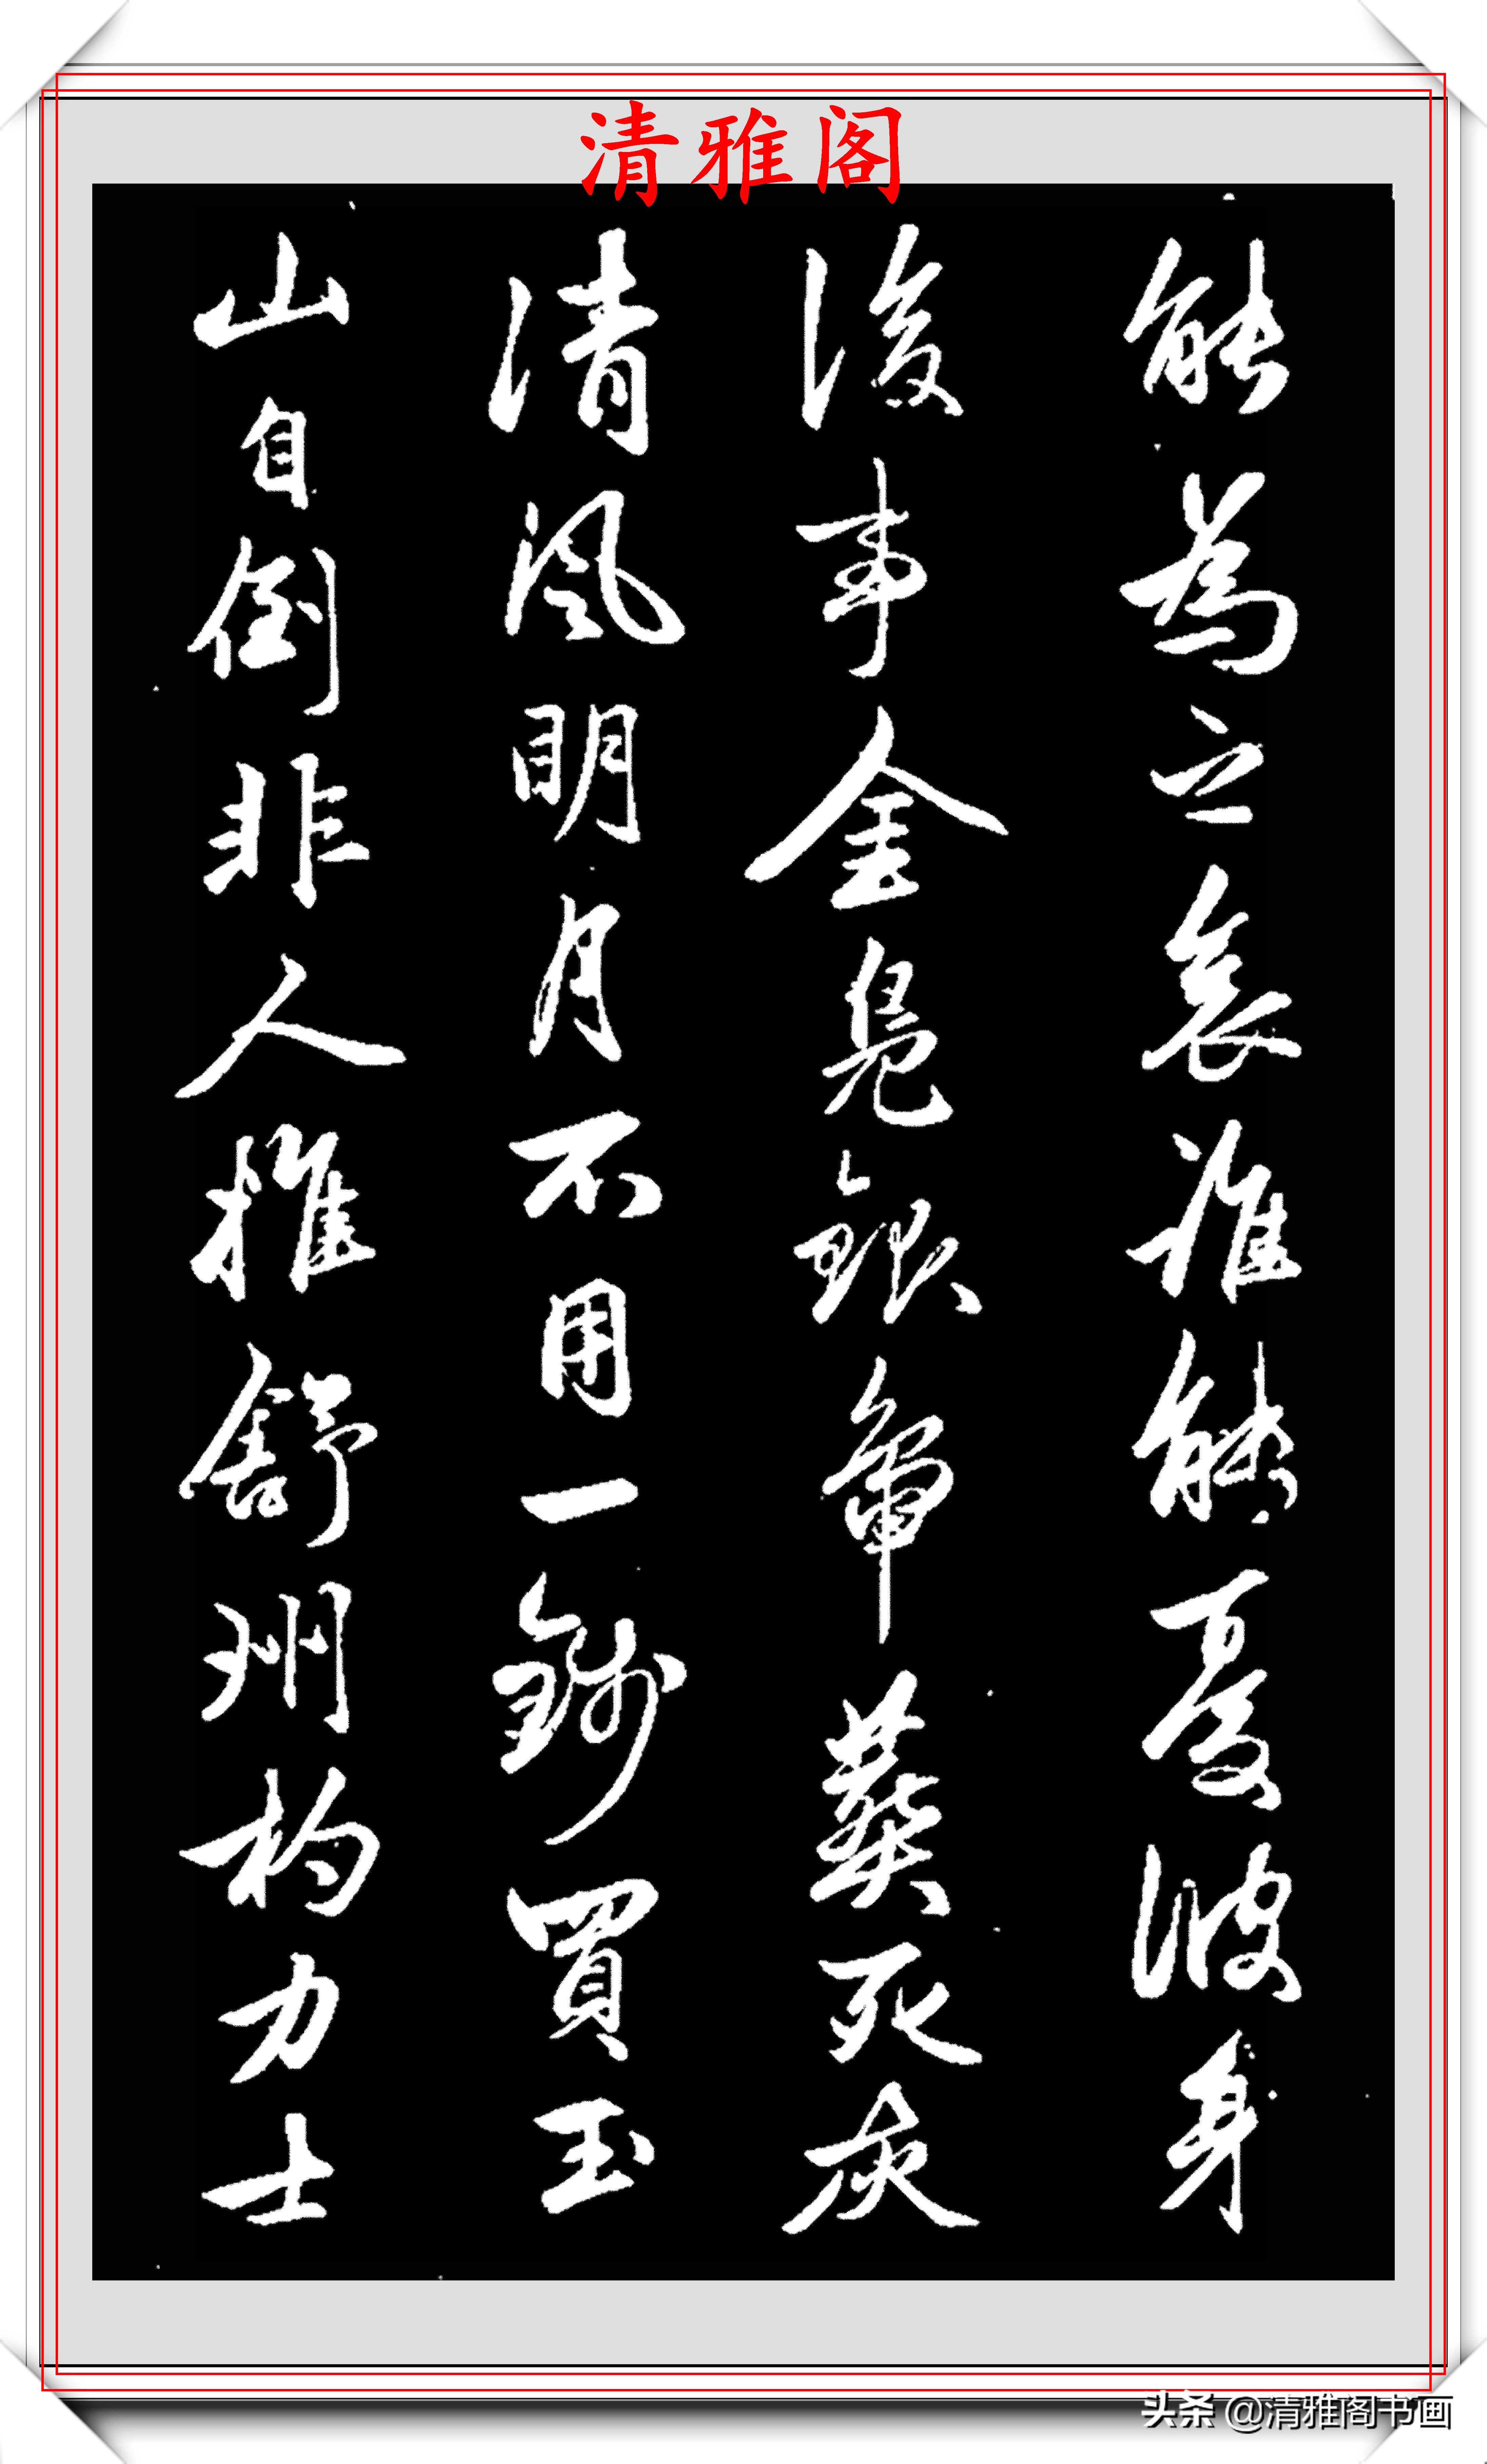 清雅阁
能為之哀誰能憂彼身
後事金鳧銀鴨葬死灰
清風明月不用一錢買玉
山自倒非人推舒州杓力士
头条 @清雅阁书画